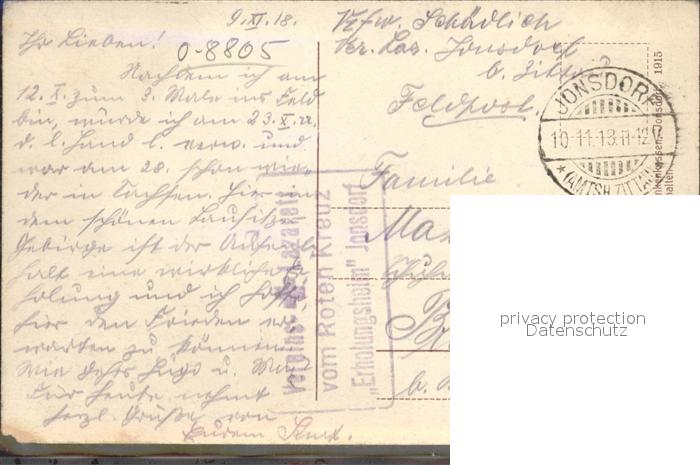 9.XI.18.
Ihr Lieben!
0-8805
Nachdem ich am
12.X. zum 3. Male ins Feld
bin, wurde ich am 23.X. an
d. l. Hand l. verw. und
war am 28. schon wie-
der in Sachsen. Hier in
dem schönen Lausitzer
Gebirge ist der Aufent-
halt eine wirkliche Er-
holung und ich hoffe,
hier den Frieden er-
warten zu können.
Wie gehts Hugo u.
Für heute nehmt
herzl. Grüße von
Eurem
Vzfw. Schädlich
Ver. Laz. Jonsdorf
b. Zittau
Feldpost.
Familie
Max
b.
JONSDORF
10.11.18.11-12V
(AMTSH. ZITTAU)
Vereins-Lazarett
vom Roten Kreuz
„Erholungsheim" Jonsdorf
1915
privacy protection
Datenschutz